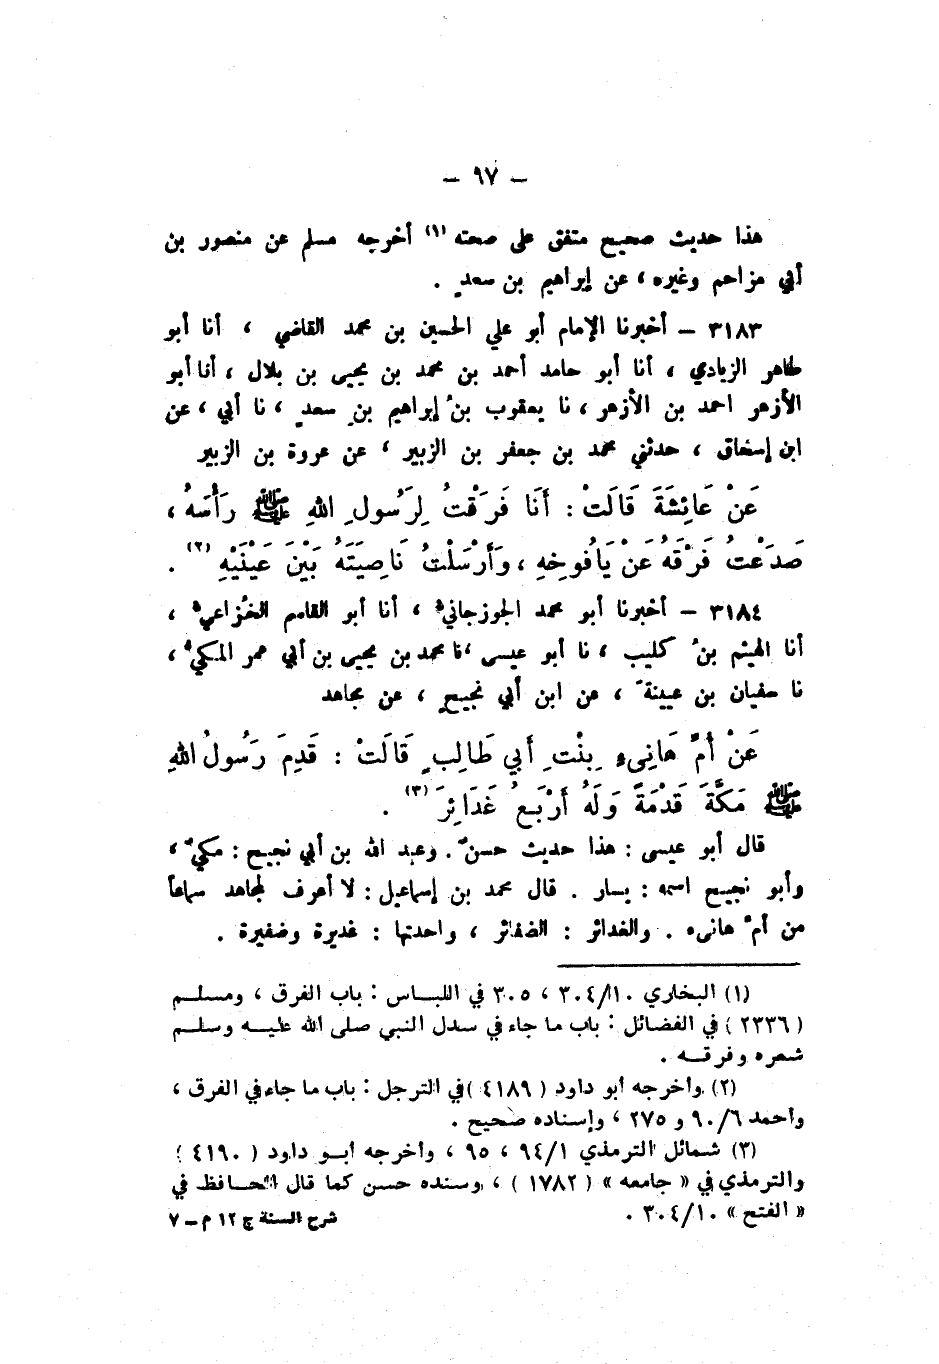 — ٩٧ —
هذا حديث صحيح متفق على صحته (١) أخرجه مسلم عن منصور بن
أبي مزاحم وغيره ، عن إبراهيم بن سعدٍ .
٣١٨٣ – أخبرنا الإمام أبو علي الحسين بن محمد القاضي ، أنا أبو
طاهر الزيادي ، أنا أبو حامد أحمد بن محمد بن يحيى بن بلال ، أنا أبو
الأزهر احمد بن الأزهر ، نا يعقوب بنُ إبراهيم بنِ سعدٍ ، نا أبي ، عن
ابن إسحاق ، حدثني محمد بن جعفر بن الزبير ، عن عروة بن الزبير
عَنْ عَائِشَةَ قَالَتْ : أَنَا فَرَقْتُ لِرَسُولِ اللهِ ﷺ رَأْسَهُ ،
صَدَعْتُ فَرْقَهُ عَنْ يَافُوخِهِ ، وَأَرْسَلْتُ نَاصِيَتَهُ بَيْنَ عَيْنَيْهِ (٢) .
٣١٨٤ – أخبرنا أبو محمد الجوزجانيُّ ، أنا أبو القاسم الخُزاعيُّ ،
أنا الهيثم بنُ كليب ، نا أبو عيسى ، نا محمد بن يحيى بن أبي عمر المكيُّ ،
نا سفيان بن عيينةَ ، عن ابن أبي نجيحٍ ، عن مجاهد
عَنْ أُمِّ هَانِيءٍ بِنْتِ أَبِي طَالِبٍ قَالَتْ : قَدِمَ رَسُولُ اللهِ
ﷺ مَكَّةَ قَدْمَةً وَلَهُ أَرْبَعُ غَدَائِرَ (٣) .
قال أبو عيسى : هذا حديث حسنٌ . وعبد الله بن أبي نجيح : مكيٌّ ،
وأبو نجيح اسمه : يسار . قال محمد بن إسماعيل : لا أعرف لمجاهد سماعاً
من أمِّ هانىء . والغدائر : الضفائر ، واحدتها : غديرة وضفيرة .
(١) البخاري ٣٠٤/١٠ ، ٣٠٥ في اللبـاس : باب الفرق ، ومسلـم
( ٢٣٣٦ ) في الفضائل : باب ما جاء في سدل النبي صلى الله عليـه وسلـم
شعره وفرقـه .
(٢) وأخرجه أبو داود ( ٤١٨٩ ) في الترجل : باب ما جاء في الفرق ،
وأحمد ٩٠/٦ و ٢٧٥ ، وإسناده صحيح .
(٣) شمائل الترمذي ٩٤/١ ، ٩٥ ، وأخرجه أبـو داود ( ٤١٩٠ )
والترمذي في « جامعه » ( ١٧٨٢ ) ، وسنده حسن كما قال الحـافظ في
« الفتح » ٣٠٤/١٠ .
شرح السنة ج ١٢ م – ٧